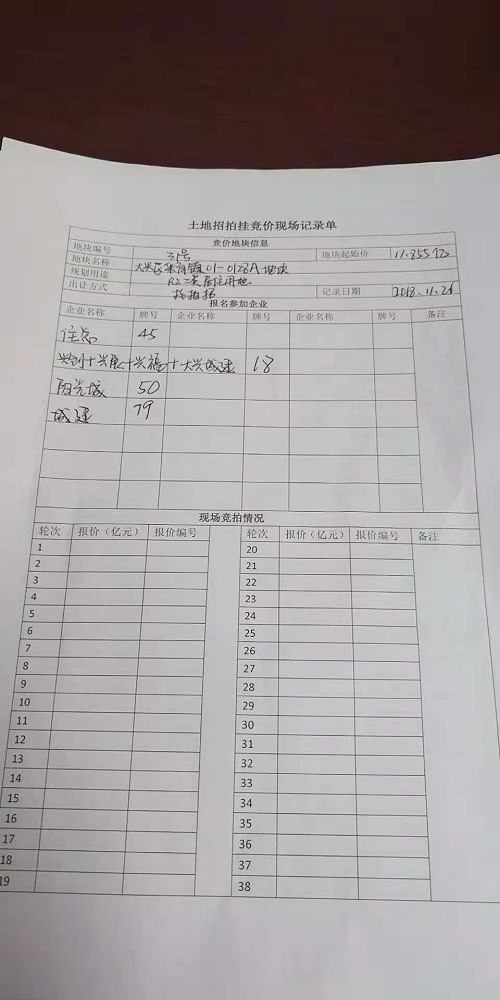 土地招拍挂竞价现场记录单
竞价地块信息
地块编号 31号 地块起始价 11.855亿
地块名称 大兴区采育镇01-0128A地块
规划用途 R2二类居住用地
出让方式 招拍挂 记录日期 2018.11.26
报名参加企业
企业名称 牌号 企业名称 牌号 企业名称 牌号 备注
住总 45
兴创+兴展+兴福+大兴城建 18
阳光城 50
城建 79
现场竞拍情况
轮次 报价（亿元） 报价编号 轮次 报价（亿元） 报价编号 备注
1 20
2 21
3 22
4 23
5 24
6 25
7 26
8 27
9 28
10 29
11 30
12 31
13 32
14 33
15 34
16 35
17 36
18 37
19 38